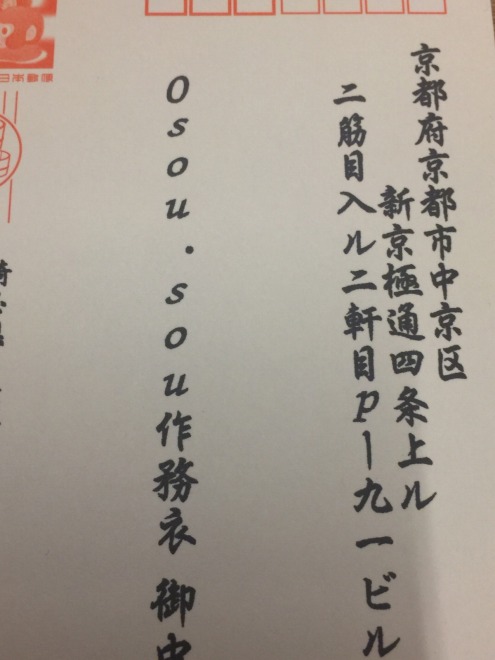 京都府京都市中京区
新京極通四条上ル
二筋目入ル二軒目P－九一ビル
Osou．sou作務衣 御中
日本郵便